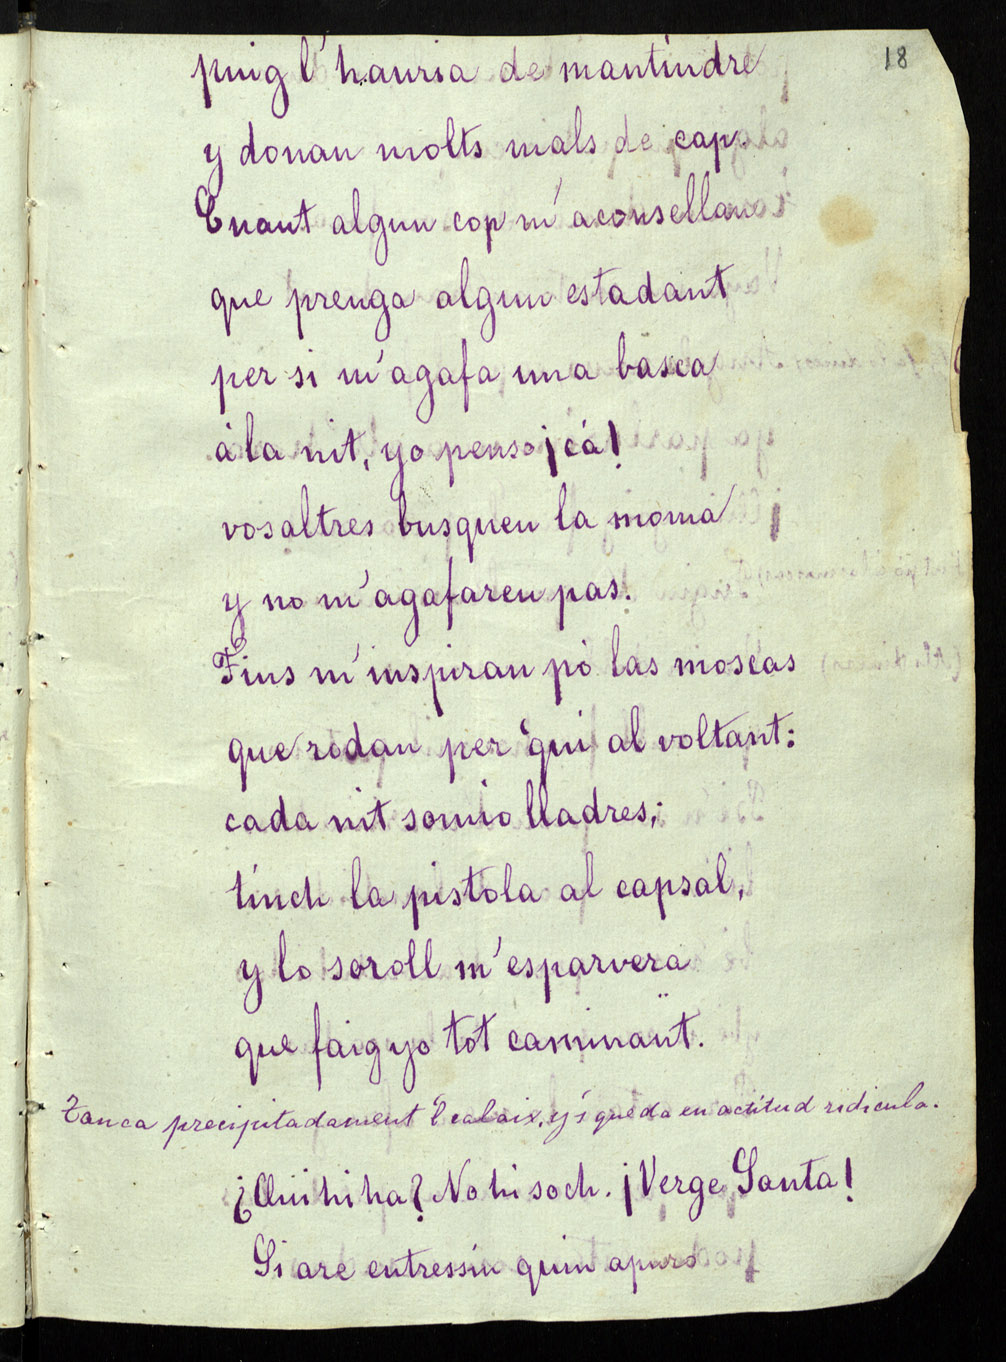 18
puig l'hauria de mantindre
y donan molts mals de cap.
Cuant algun cop m'aconsellan
que prenga algun estadant
per si m'agafa una basca
á la nit, yo penso ¡cá!
vosaltres busqueu la moma
y no m'agafareu pas.
Fins m'inspiran pò las moscas
que rodan per 'qui al voltant:
cada nit somio lladres;
tinch la pistola al capsal,
y lo soroll m'esparvera
que faig yo tot caminant.
Tanca precipitadament 'l calaix, y's queda en actitud ridicula.
¿Qui hi ha? No hi soch. ¡Verge Santa!
Si are entressin quin apuro